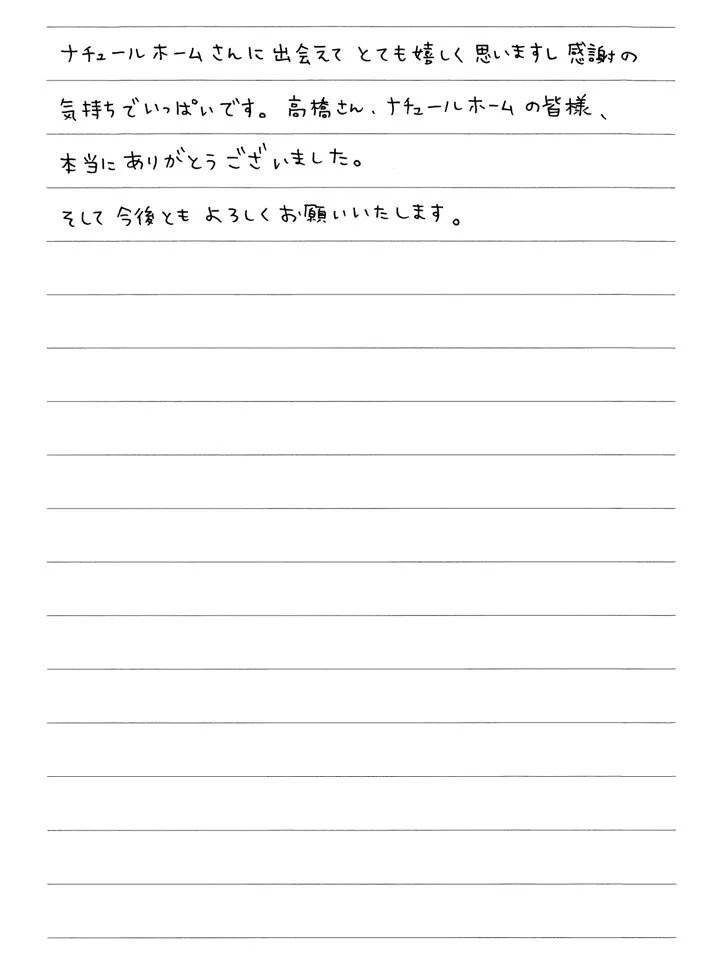 ナチュールホームさんに出会えてとても嬉しく思いますし感謝の
気持ちでいっぱいです。高橋さん、ナチュールホームの皆様、
本当にありがとうございました。
そして今後ともよろしくお願いいたします。